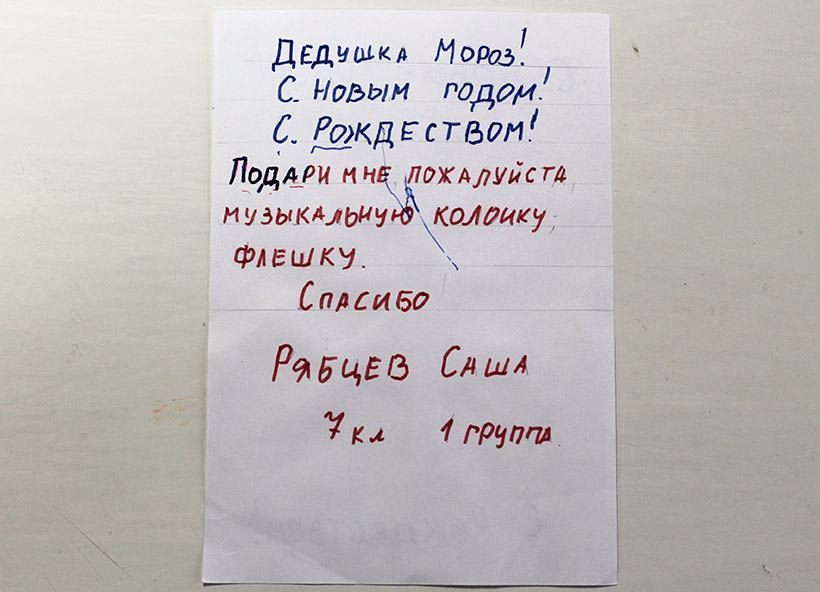 Дедушка Мороз!
С. Новым годом!
С. Рождеством!
Подари мне пожалуйста
музыкальную колонку
флешку.
Спасибо
Рябцев Саша
7 кл 1 группа
С Рождеством!